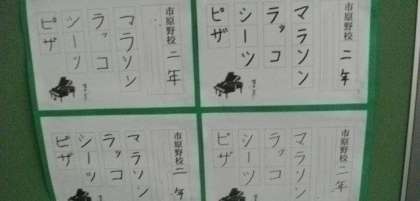 市原野校 二年
マラソン
ラッコ
シーツ
ピザ
市原野校 二年
マラソン
ラッコ
シーツ
ピザ
市原野校 二年
マラソン
ラッコ
シーツ
ピザ
市原野校 二年
マラソン
ラッコ
シーツ
ピザ